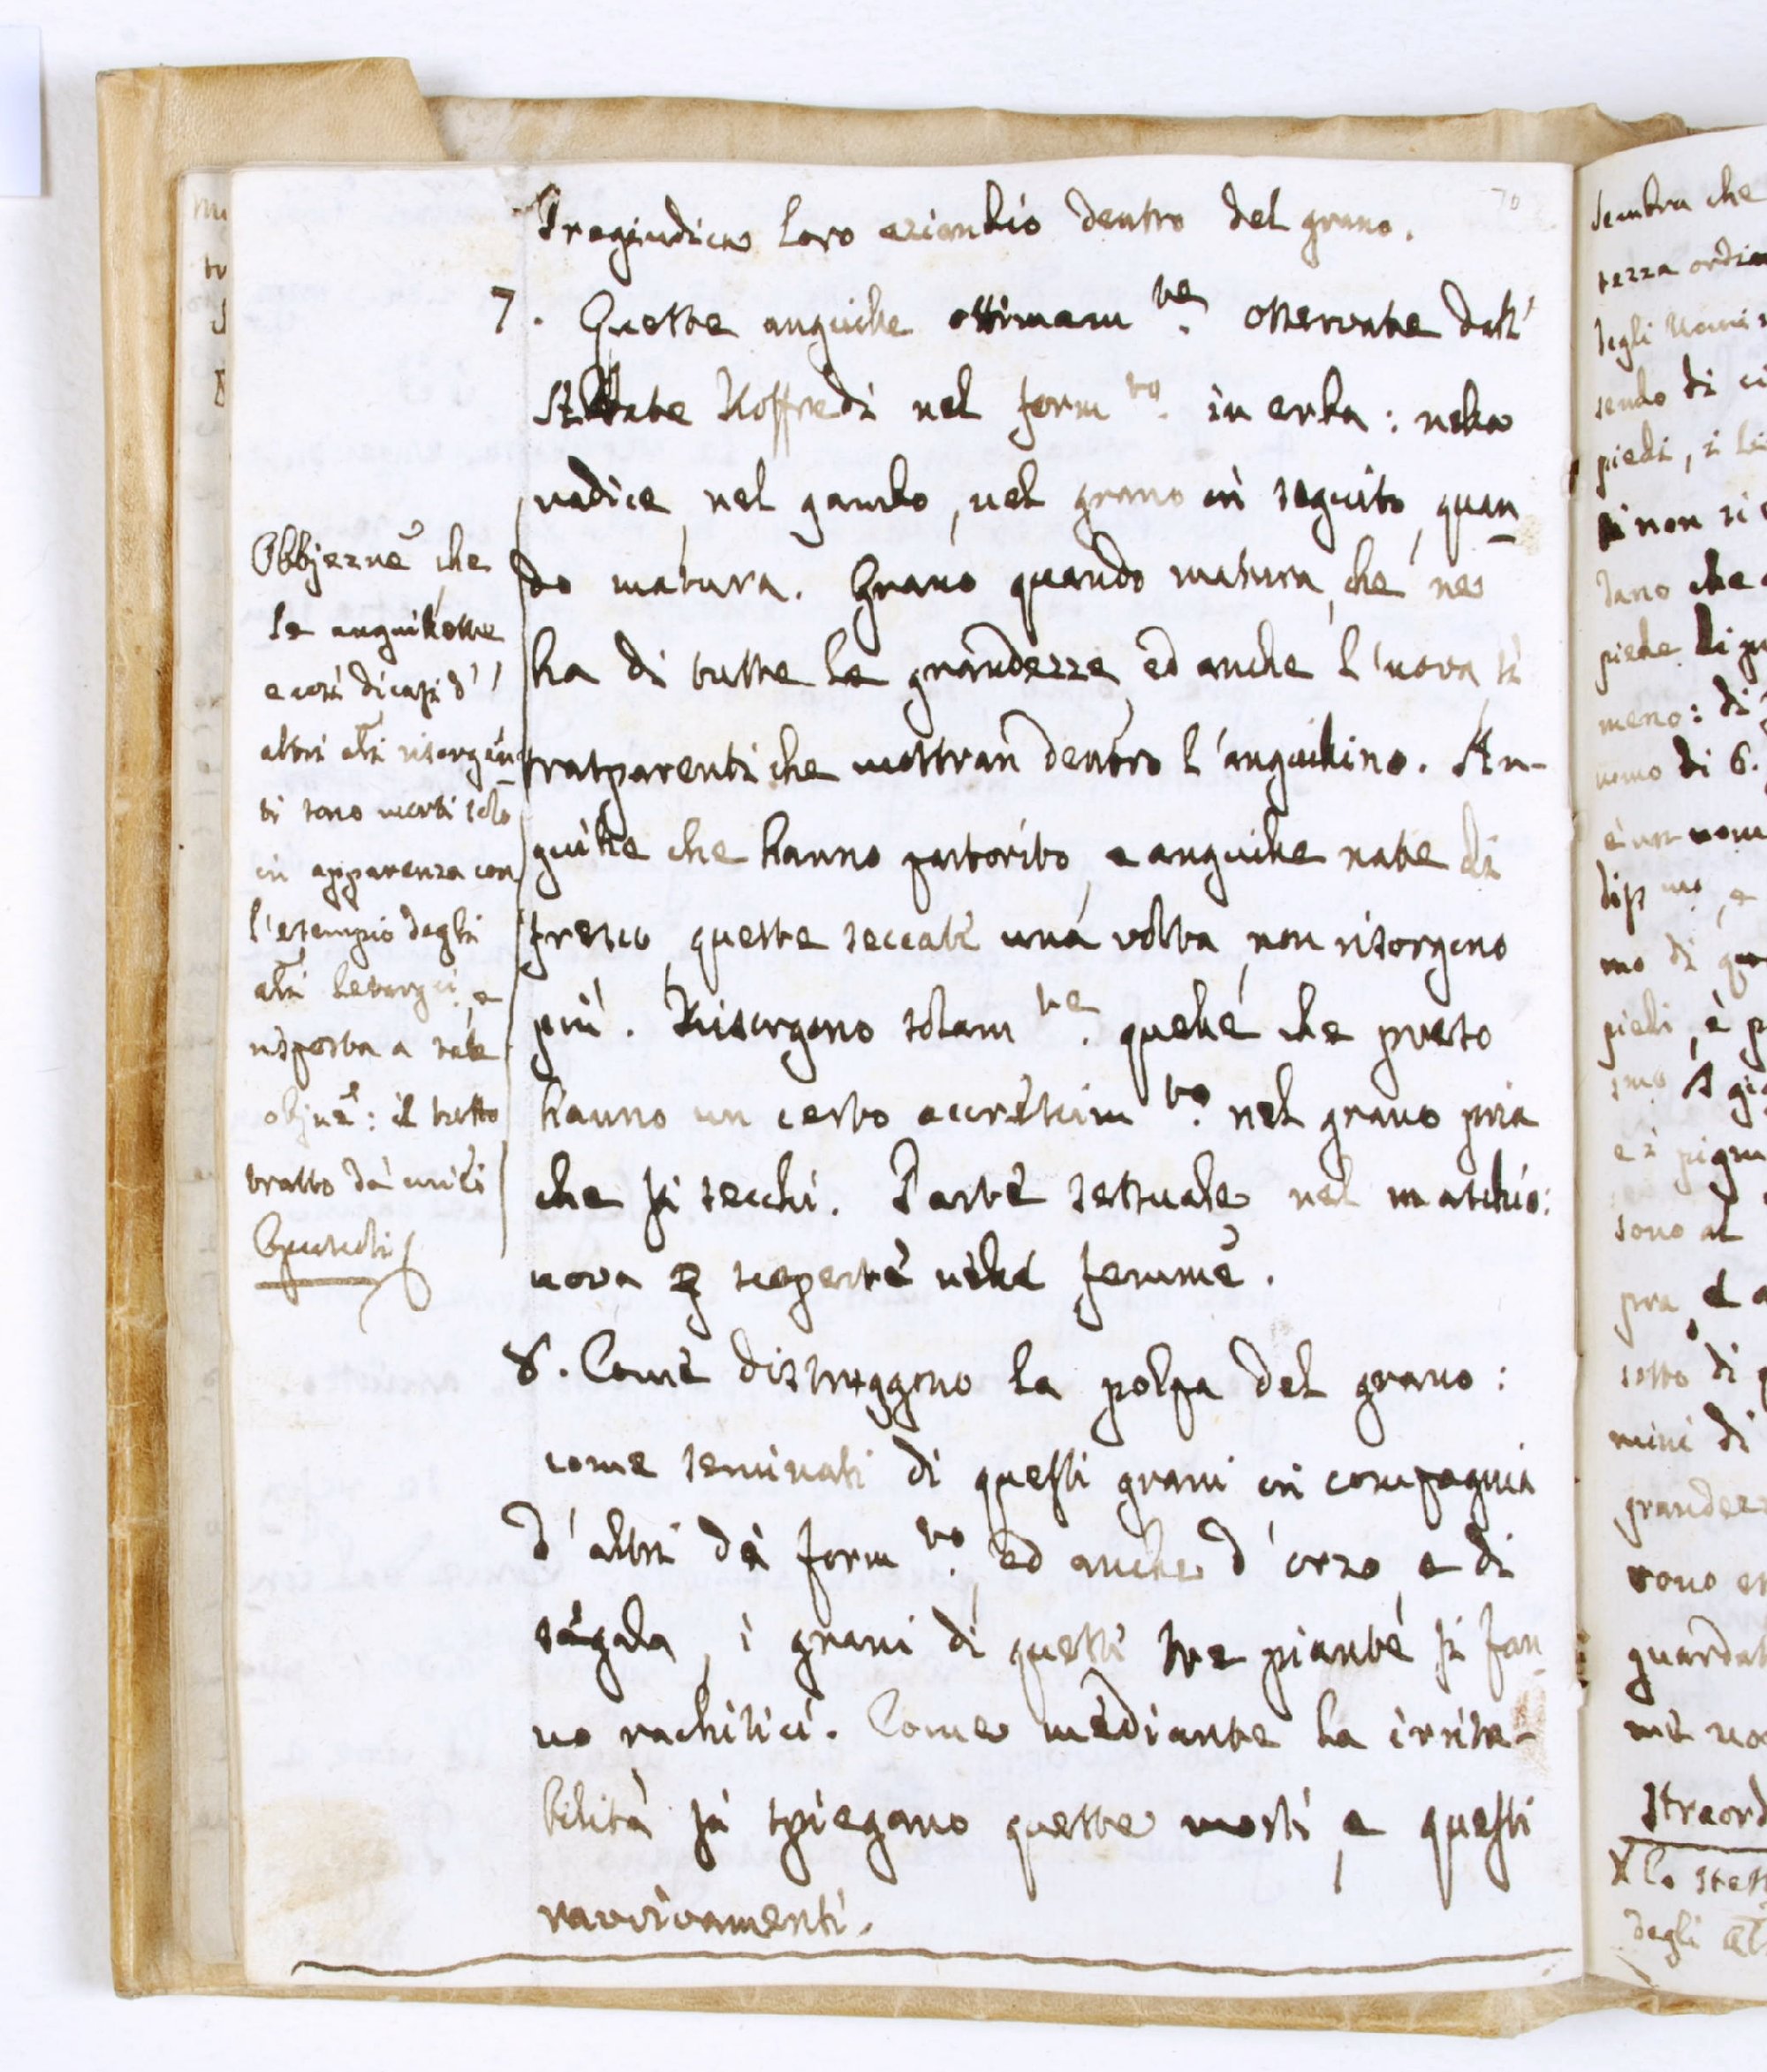 70
Pregiudica loro eziandio dentro del grano.
7. Queste anguille ottimamte. osservate dall'
Abbate Roffredi nel formto. in erba: nella
radice, nel gambo, nel grano in seguito, quan
do matura. Grano quando matura, che ne
ha di tutte le grandezze, ed anche l'uova sì
trasparenti che mostran dentro l'anguillino. An-
guille che hanno partorito, e anguille nate di
fresco, queste seccate una volta, non risorgono
più. Risorgono solamte. quelle che preso
hanno un certo accrescimto. nel grano pria
che si secchi. Parte sessuale nel maschio:
uova scoperte nelle femme.
8. Come distruggono la polpa del grano:
come seminati di questi grani in compagnia
d'altri di formto. ed anche d'orzo, e di
ségala, i grani di queste tre piante si fan
no rachitici. Come mediante la irrita-
bilità si spiegano queste morti, e questi
ravvivamenti.
Obbjezne che
le anguillette
e così dicasi d'
altri ali risorgen
ti sono morti solo
in apparenza con
l'esempio degli
ali letargici, e
risposta a tale
objne: il tutto
tratto da' miei
Opuscoli
sembra che
tezza ordin
degli Uomi
sendo di ci
piedi, si
non si
dano che
piede di
meno: di
uomo di 6.
è un uom
mo di
piedi, è p
sono al
pra, e a
sotto di p
mini di
grandez
guardat
Straord
X lo stess
degli